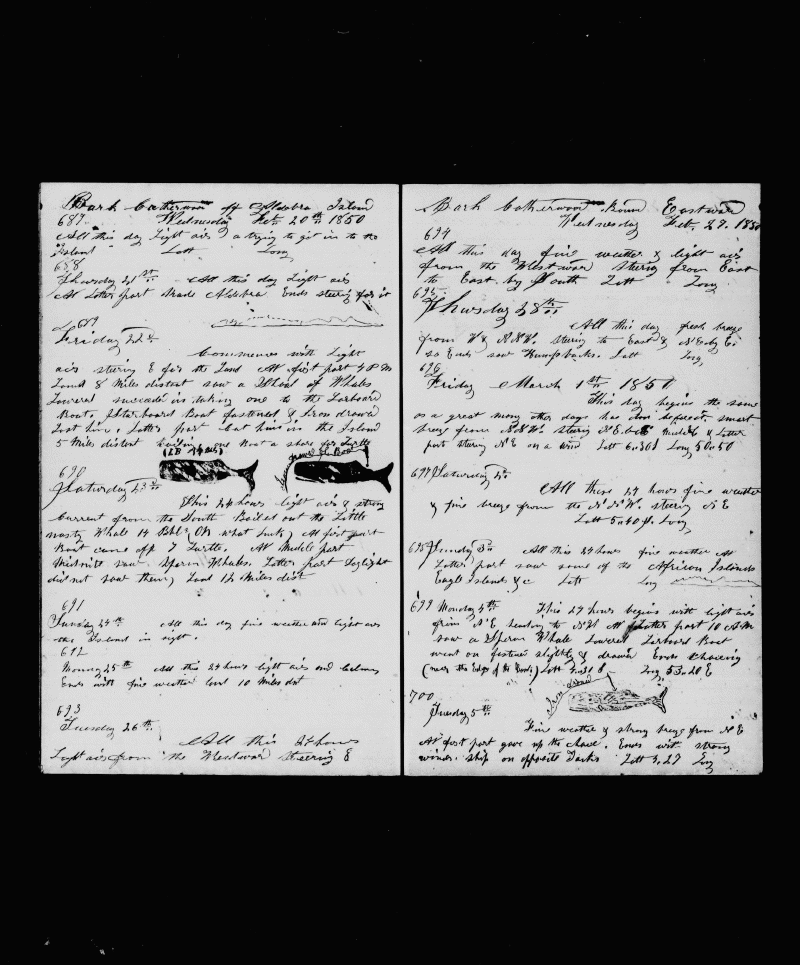 Bark Catherwood off Aldabra Island
687 Wednesday Feb. 20th 1850
All this day Light airs a trying to git in to the
Island Latt Long
688
Thursday 21st All this day Light airs
At Latter part Made Aldabra Ends steering for it
689
Friday 22d
Commences with Light
airs steering E for the Land At first part 4 P M
Land 8 Miles distant saw a School of Whales
Lowered succeeded in taking one to the Larboard
Boat. Starboard Boat fastened & Iron drawed
Lost him. Latter part Cut him in the Island
5 Miles distant boiling one Boat a shore for Turtle
690
Saturday 23d
This 24 hours light airs & strong
Current from the South Boiled out the Little
nasty Whale 14 Bbls (Oh what luck) At first part
Boat came off 7 Turtle. At Middle part
Midnite saw Sperm Whales. Latter part daylight
did not saw them, Land 12 Miles dist
691
Sunday 24th All this day fine weather and light airs
the Island in sight.
692
Monday 25th All this 24 hours light airs and calms
Ends with fine weather land 10 Miles dist
693
Tuesday 26th
All this 24 hours
Light airs from the Westward Steering E
Bark Catherwood Bound Eastward
Wednesday Feb. 27. 1850
694
All this day fine weather & light airs
from the Westward steering from East
to East by South Latt Long
695
Thursday 28th
All this day fresh breeze
from W & N.N.W. steering to East & N E by E
so Ends saw Humpbacks. Latt Long
696
Friday March 1st 1850
This day begins the same
as a great many other days has smart
breeze from N.N.W. steering N.E. Middle & Latter
part steering N E on a wind Latt 6.36 Long 50.50
697 Saturday 2d
All these 24 hours fine weather
& fine breeze from the N.N.W. steering N E
Latt 5.40 Long
698 Sunday 3d All this 24 hours fine weather At
Latter part saw some of the African Islands
Eagle Islands &c Latt Long
699 Monday 4th This 24 hours begins with light airs
from N E heading to N W At Latter part 10 A M
saw a Sperm Whale Lowered Larboard Boat
went on fastened slightly & drawed Ends Chasing
(near the Edge of the Bank) Latt Long 53.20 E
Iron drawed
700
Tuesday 5th
Fine weather & strong breeze from N E
At first part gave up the chase. Ends with strong
winds. Ship on opposite Tacks Latt 3,27 Long